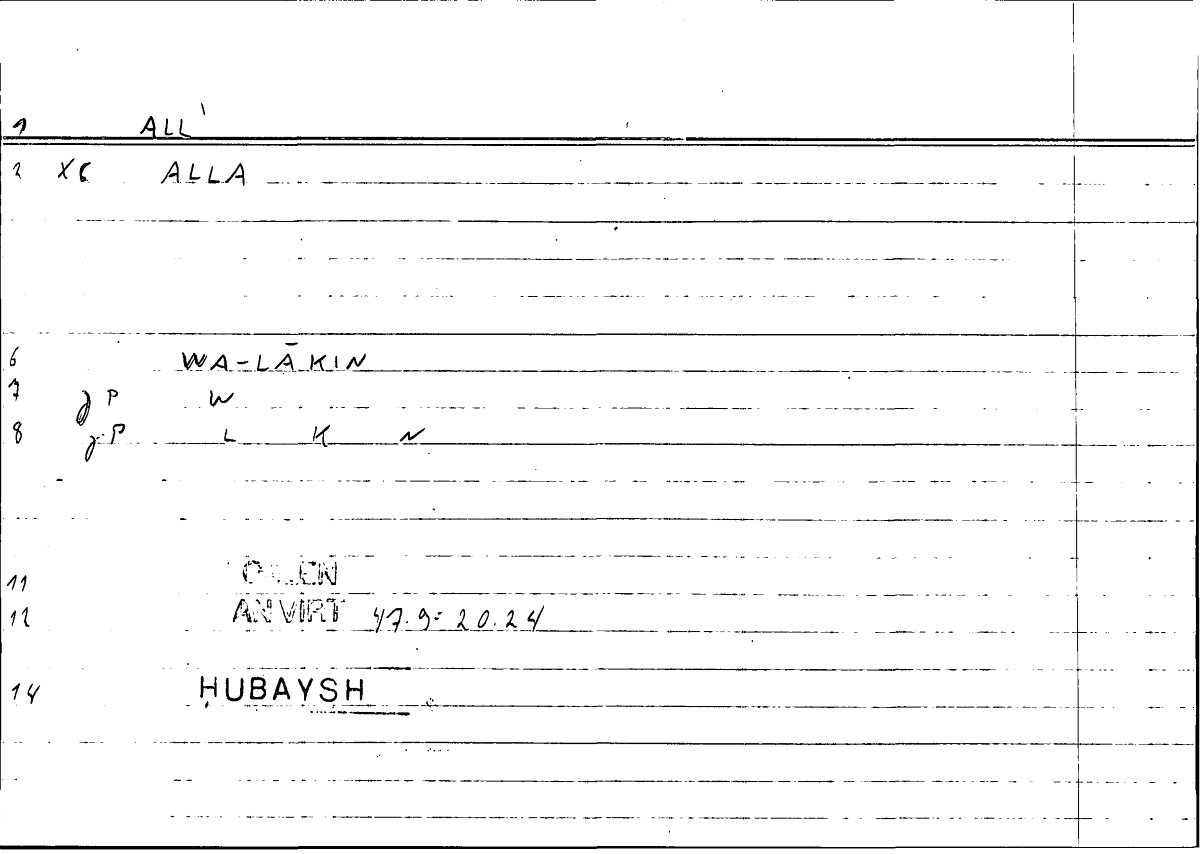 1 ALL'
2 ALLA
6 WA-LĀKIN
7 P W
8 P L K N
11 GALEN
12 AN VIRT 47.9= 20.24
14 ḤUBAYSH